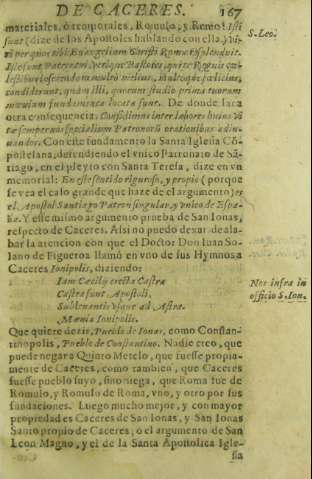 DE CACERES. 167
materiales, ò corporales, Romulo, y Remo! Isti
sunt (dize de los Apostoles hablando con ella) vi-
ri per quos tibi Euangelium Christi Roma resplenduit.
S. Leo.
Isti sunt Patres tui, verique Pastores, qui te Regnis cæ-
lestibus inserendam multò melius, multoque fœlicius,
condiderunt, quàm illi, quorum studio prima tuorum
mœnium fundamenta locata sunt. De donde saca
otra consequencia: Confidimus inter labores huius vi-
tæ semper nos specialium Patronorũ orationibus adiu-
uandos. Con este fundamento la Santa Iglesia Cõ-
postelana, defendiendo el vnico Patronato de Sã-
tiago, en el pleyto con Santa Teresa, dize en vn
memorial: En este sentido riguroso, y propio (porque
se vea el caso grande que haze de el argumento) es
el Apostol Santiago Patron singular, y vnico de Espa-
ña. Y esse mismo argumento prueba de San Ionas,
respecto de Caceres. Assi no puedo dexar de ala-
bar la atencion con que el Doctor Don Iuan So-
lano de Figueroa llamó en vno de sus Hymnos à
Caceres Ionipolis, diziendo:
Iam Cæcily erecta Castra
Castra sunt Apostoli,
Subleuantis vsque ad Astra
Mœnia Ionipolis.
Nos infra in
officio S. Ion.
Que quiere dezir, Pueblo de Ionas, como Constan-
tinopolis, Pueblo de Constantino. Nadie creo, que
puede negar à Quinto Metelo, que fuesse propia-
mente de Caceres, como tambien, que Caceres
fuesse pueblo suyo, sino niega, que Roma fue de
Romulo, y Romulo de Roma, vno, y otro por sus
fundaciones. Luego mucho mejor, y con mayor
propiedad es Caceres de San Ionas, y San Ionas
Santo propio de Caceres; ò el argumento de San
Leon Magno, y el de la Santa Apostolica Igle-
sia